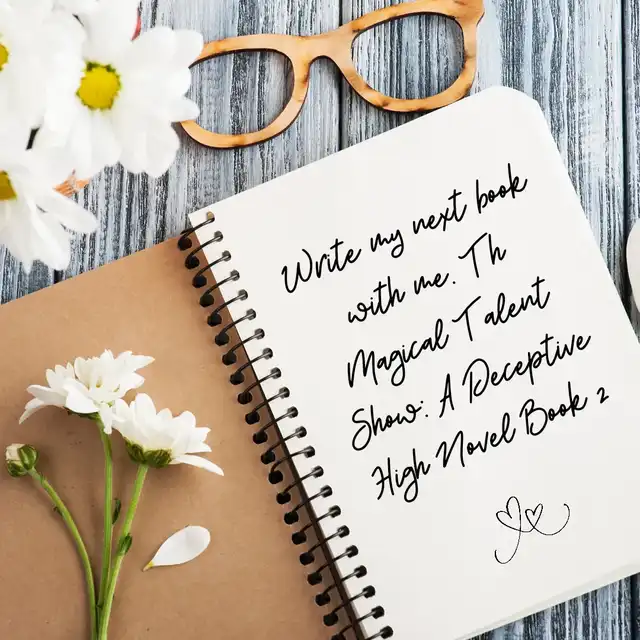 Write my next book
with me. Th
Magical Talent
Show: A Deceptive
High Novel Book 2